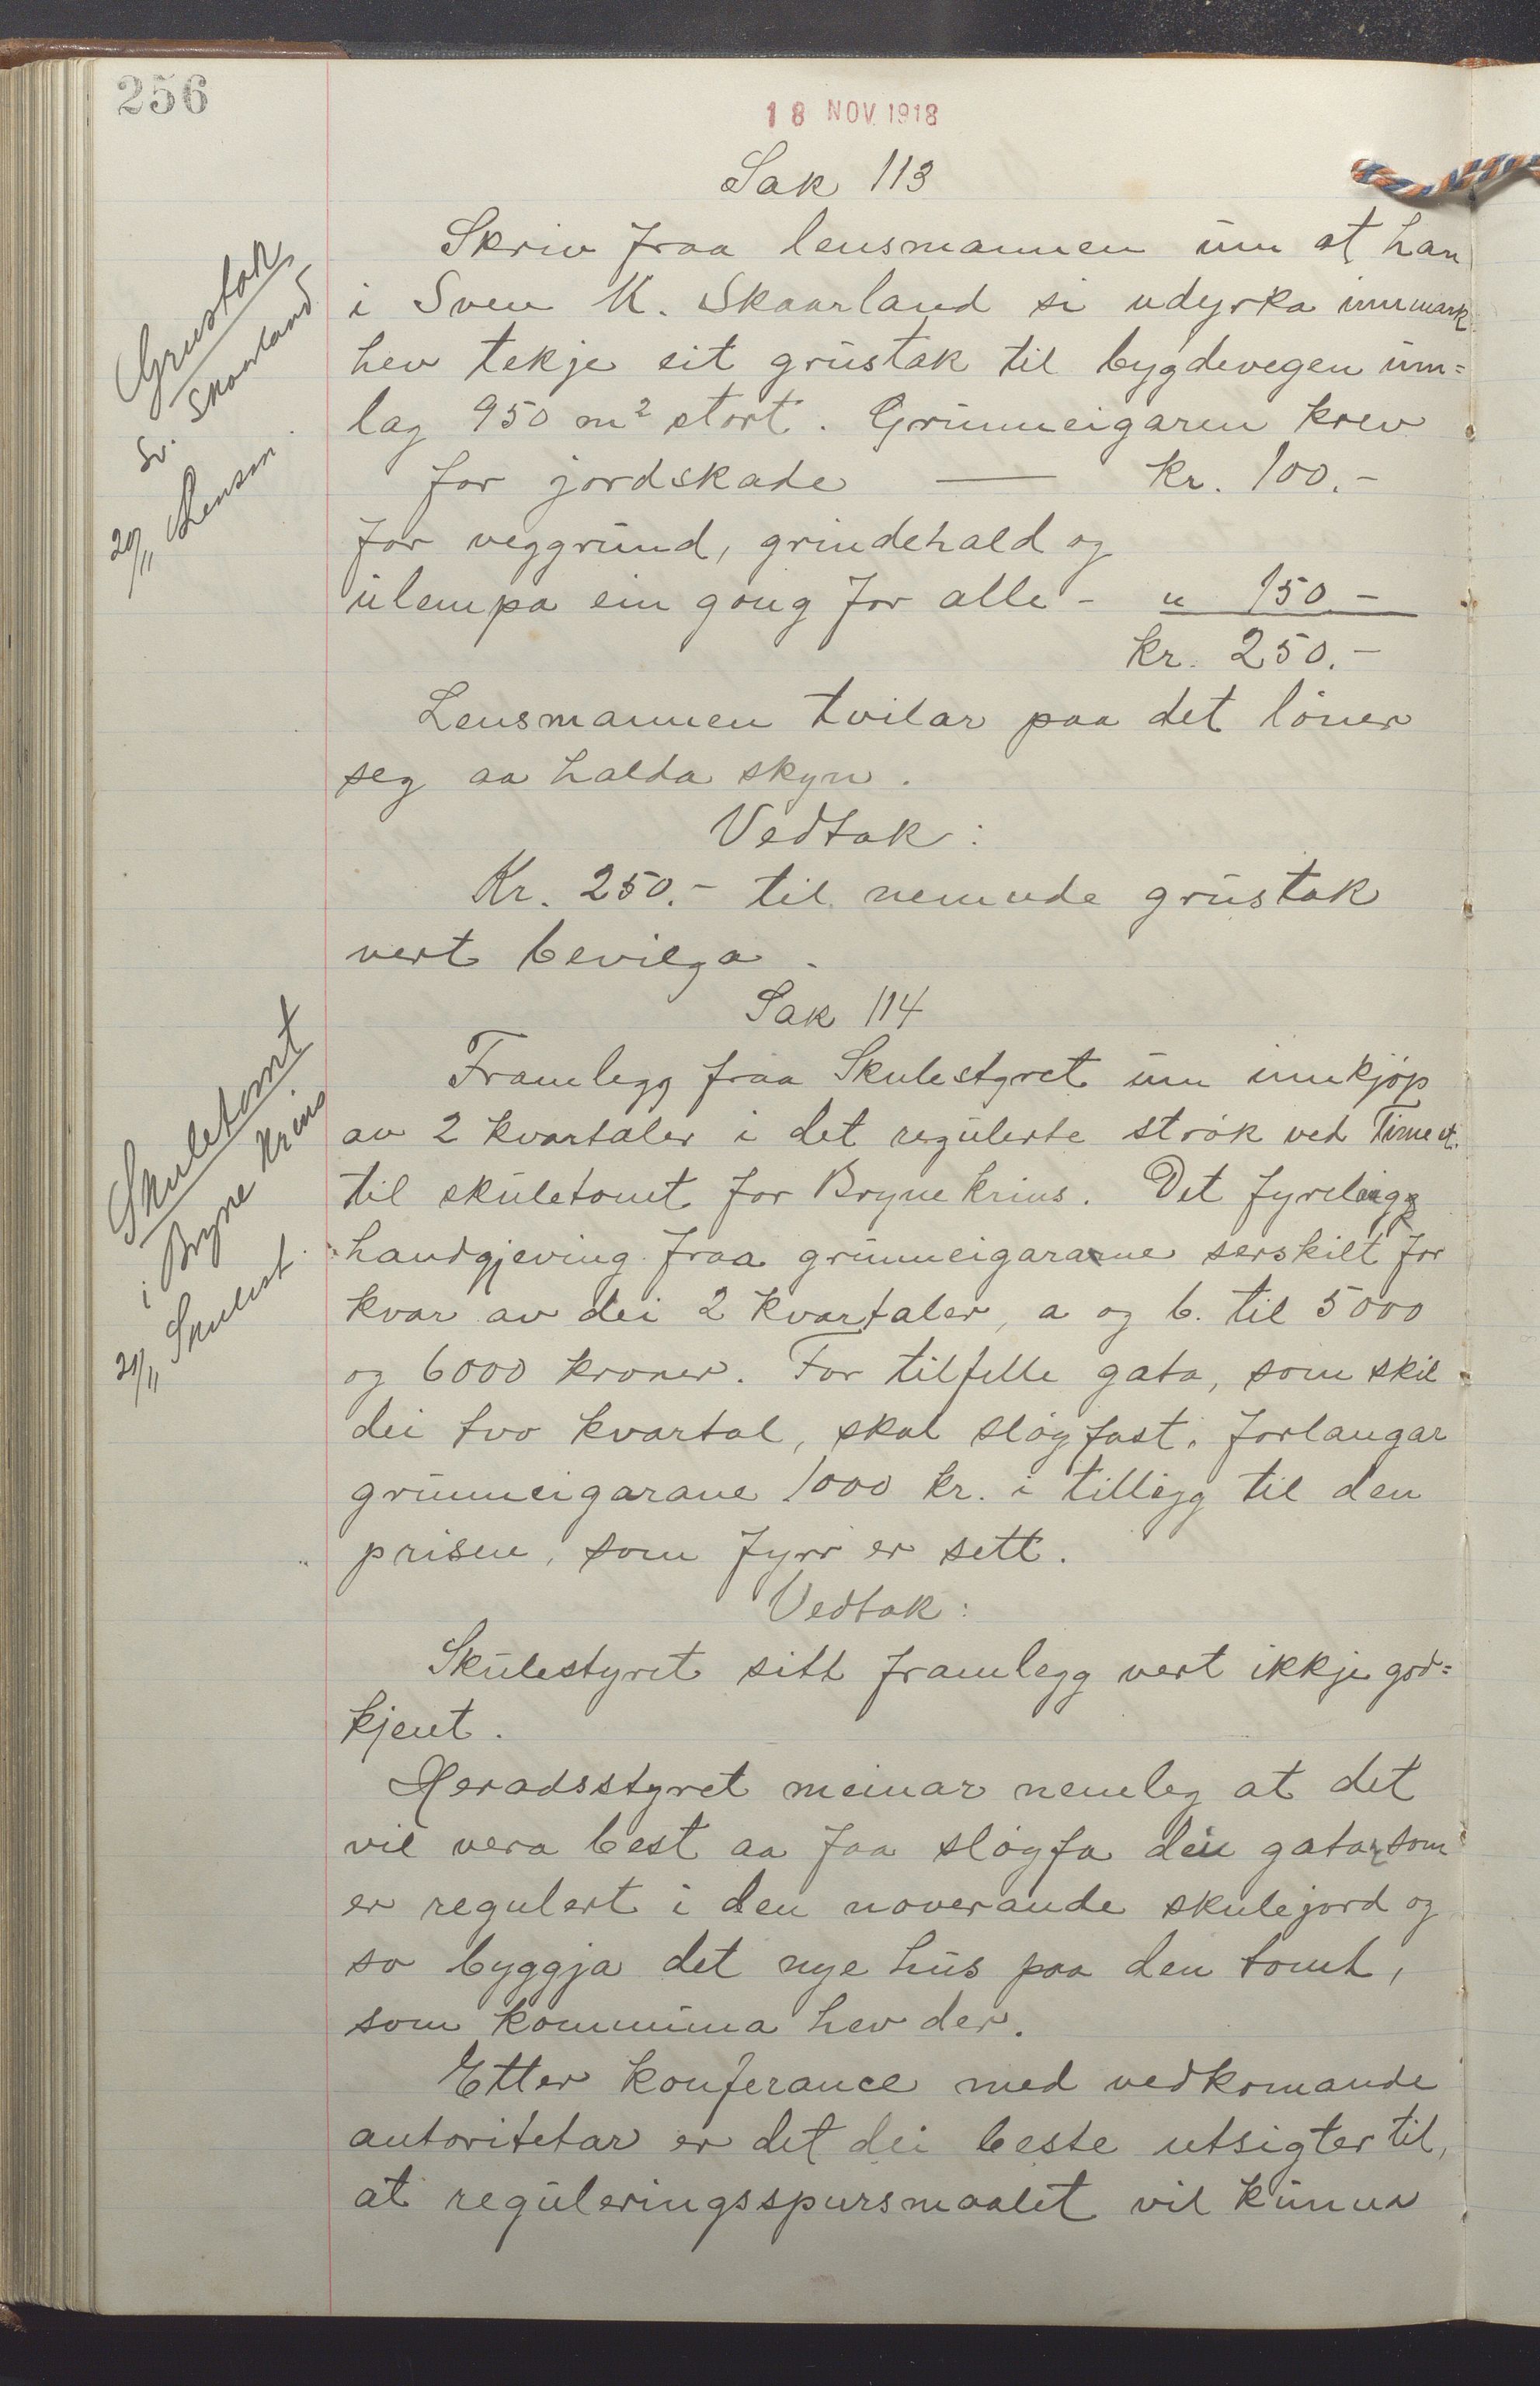 256
18 NOV. 1918
Sak 113
Grustak
Sv. Skaarland
20/11 Lensm.
Skriv fraa lensmannen um at han
i Sven K. Skaarland si udyrka innmark
hev tekje eit grustak til bygdevegen um=
lag 950 m² stort. Grunneigaren krev
for jordskade — kr. 100.-
for veggrund, grindehald og
ulempa ein gong for alle - " 150 -
kr. 250.-
Lensmannen tvilar paa det løner
seg aa halda skyn.
Vedtak:
Kr. 250.- til nemnde grustak
vert bevilga.
Sak 114
Skuletomt
i Bryne krins
20/11 Skulest.
Framlegg fraa Skulestyret um innkjøp
av 2 kvartaler i det regulerte strøk ved Time st.
til skuletomt for Bryne krins. Det fyreligg
handgjeving fraa grunneigararne serskilt for
kvar av dei 2 kvartaler, a og b. til 5000
og 6000 kroner. For tilfelle gata, som skil
dei two kvartal, skal sløyfast, forlangar
grunneigarane 1000 kr. i tillegg til den
prisen, som fyrr er sett.
Vedtak:
Skulestyret sitt framlegg vert ikkje god=
kjent.
Heradsstyret meinar nemleg at det
vil vera best aa faa sløyfa dei gatar, som
er regulert i den noverande skulejord og
so byggja det nye hus paa den tomt,
som kommuna hev der.
Etter konferance med vedkomande
autoritetar er det dei beste utsigter til,
at reguleringsspursmaalet vil kunna